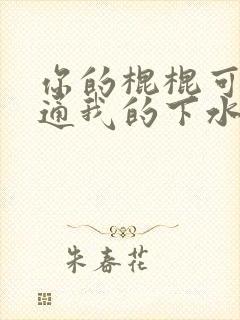 你的棍棍可
通我的下水
朱春花